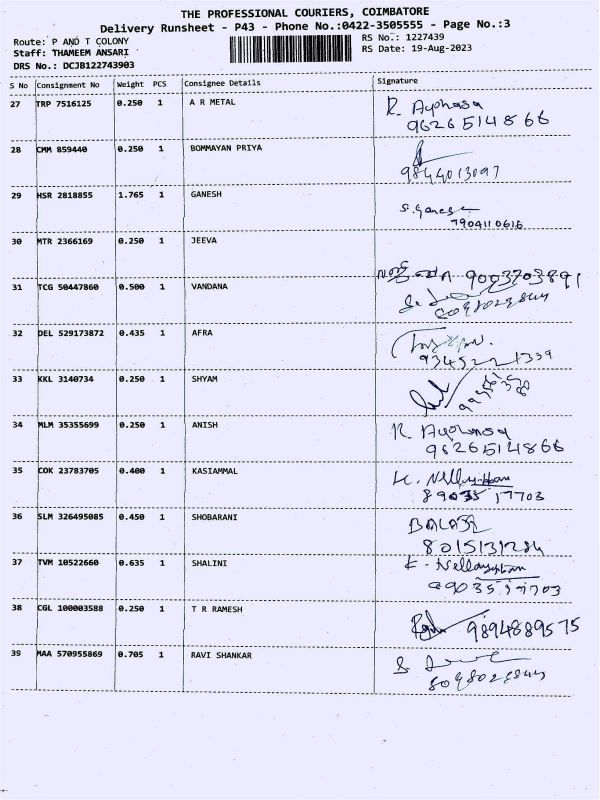 THE PROFESSIONAL COURIERS, COIMBATORE
Delivery Runsheet - P43 - Phone No.:0422-3505555 - Page No.:3
Route: P AND T COLONY
RS No.: 1227439
Staff: THAMEEM ANSARI
RS Date: 19-Aug-2023
DRS No.: DCJB122743903
S No Consignment No Weight PCS Consignee Details Signature
27 TRP 7516125 0.250 1 A R METAL
9626514866
28 CMM 859440 0.250 1 BOMMAYAN PRIYA
9844013097
29 HSR 2818855 1.765 1 GANESH
S.Ganesh
7904110616
30 MTR 2366169 0.250 1 JEEVA
9003703891
31 TCG 50447860 0.500 1 VANDANA
32 DEL 529173872 0.435 1 AFRA
33 KKL 3140734 0.250 1 SHYAM
34 MLM 35355699 0.250 1 ANISH
9626514866
35 COK 23783705 0.400 1 KASIAMMAL
K. Nellayppan
8903517703
36 SLM 326495085 0.450 1 SHOBARANI
BALAJI
8015131284
37 TVM 10522660 0.635 1 SHALINI
K. Nellayppan
8903517703
38 CGL 100003588 0.250 1 T R RAMESH
9894889575
39 MAA 570955869 0.705 1 RAVI SHANKAR